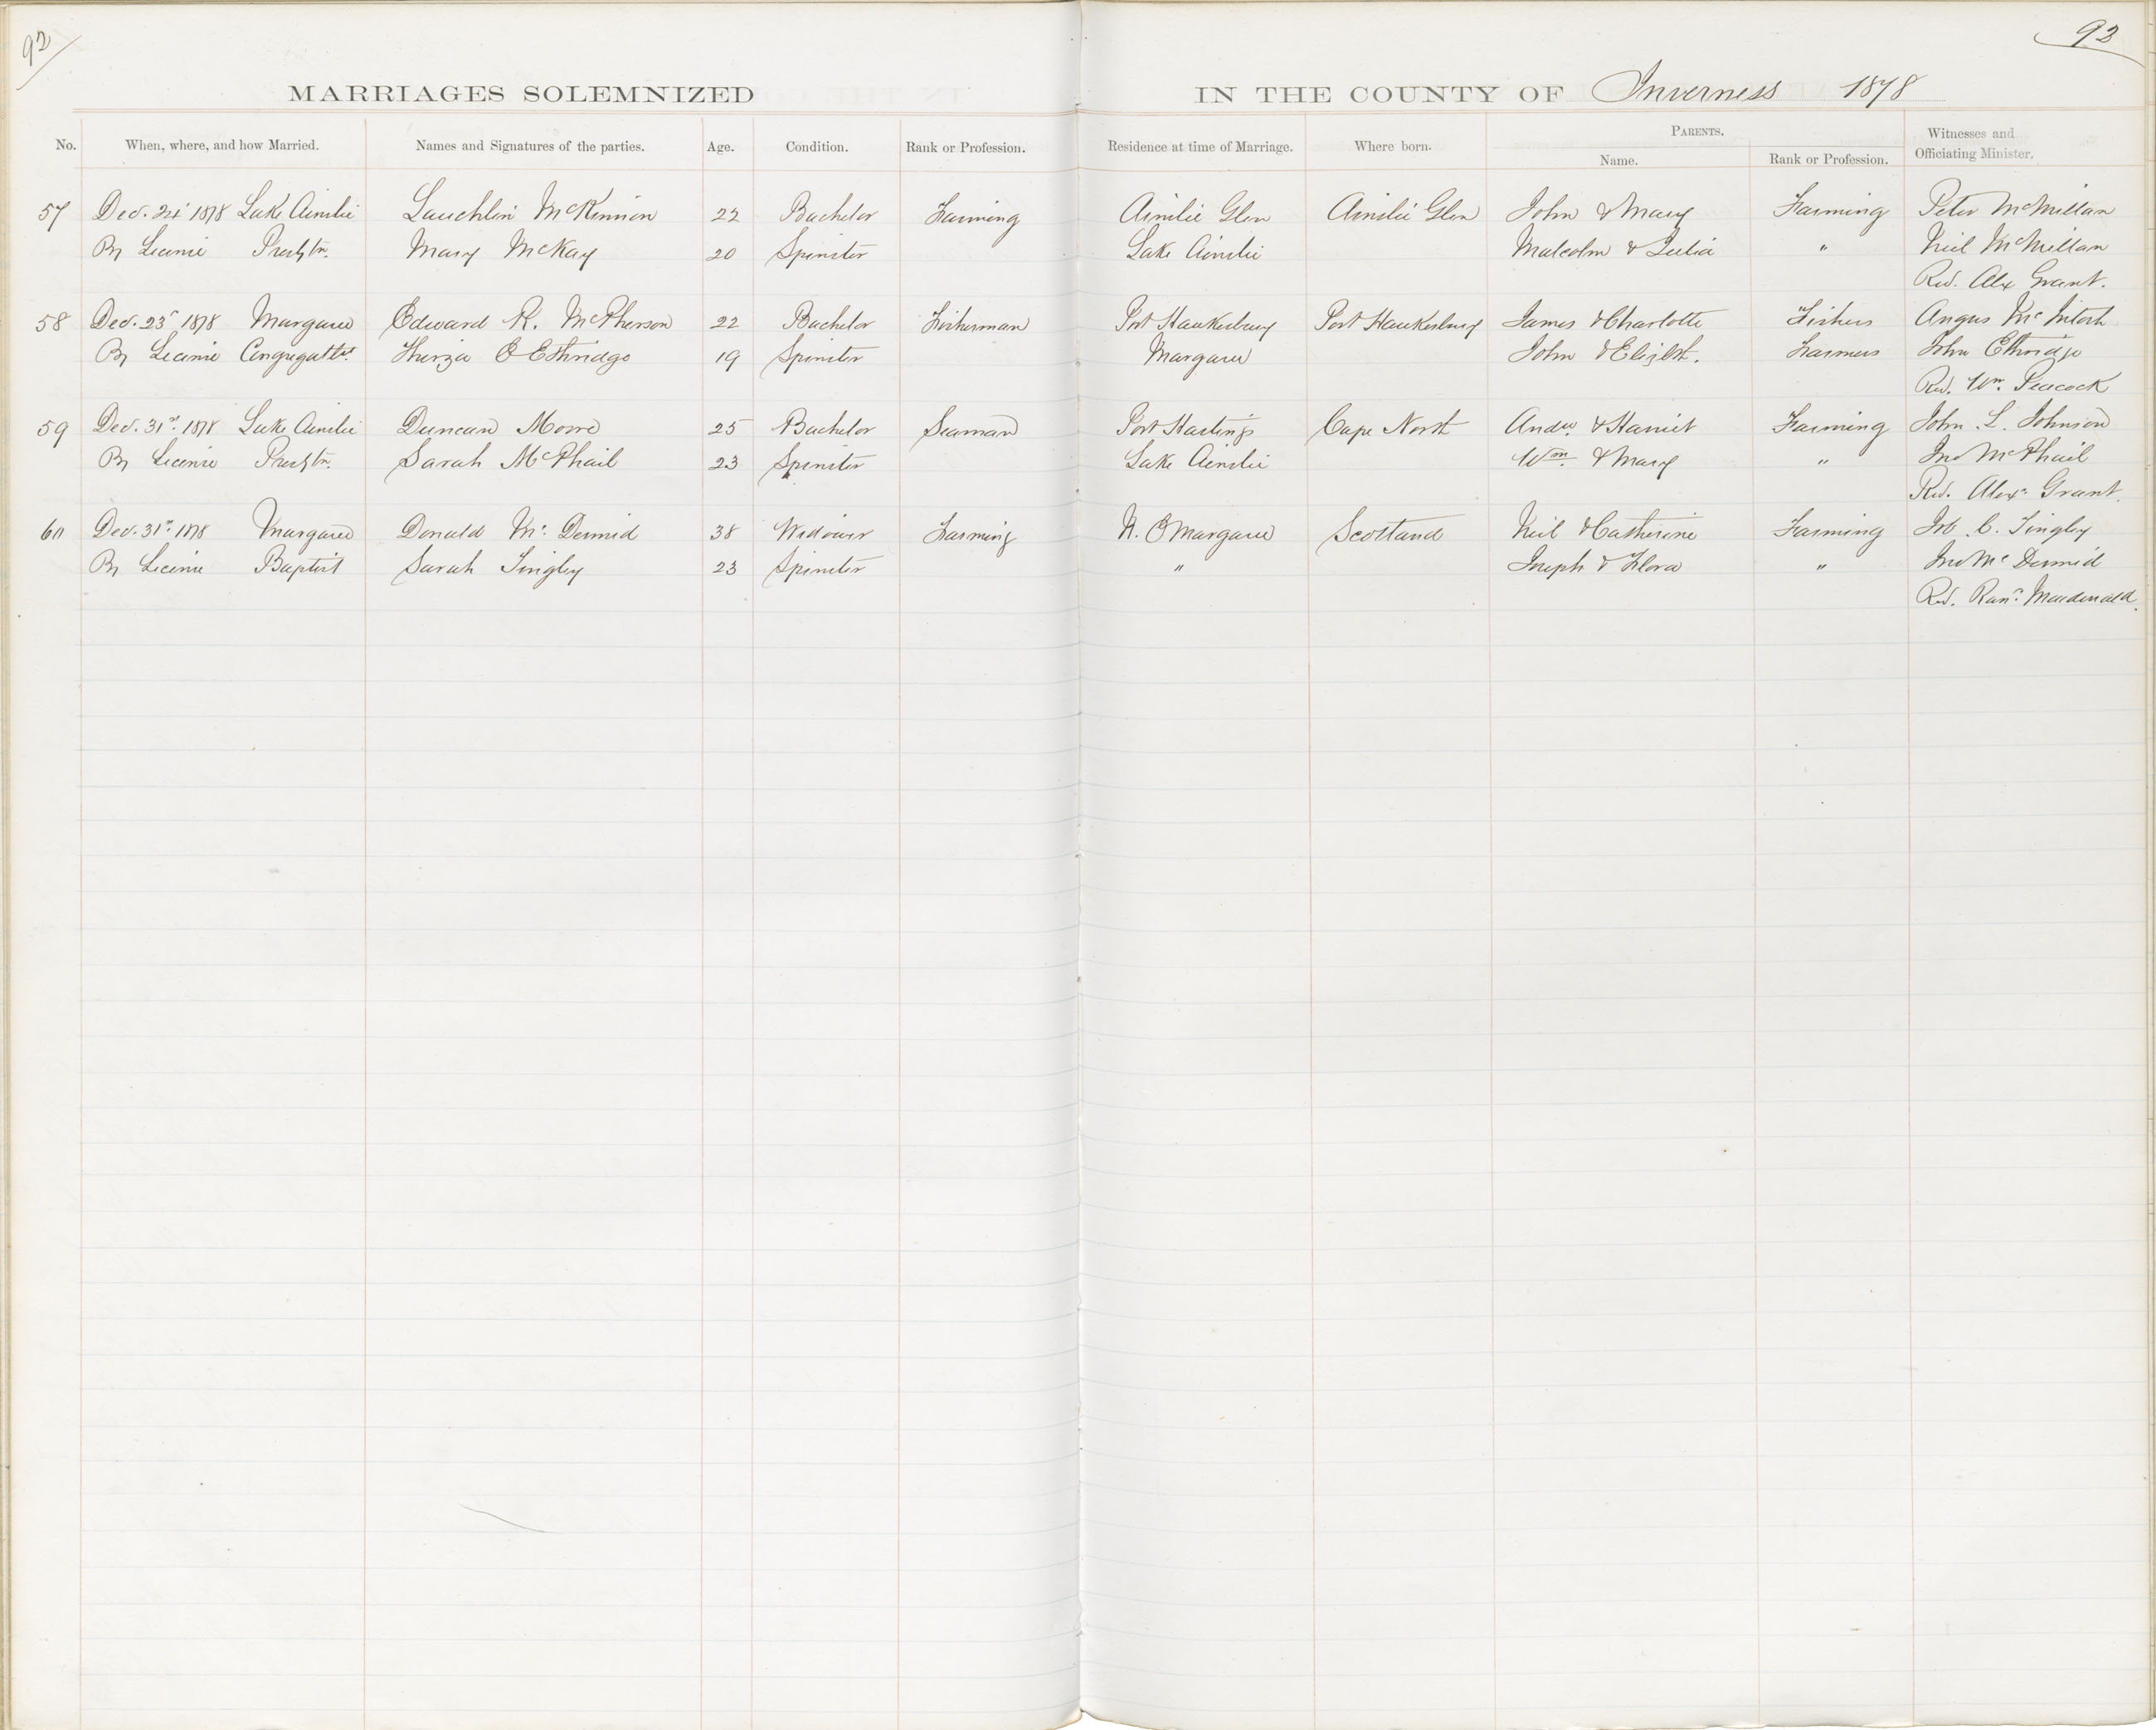 92
92
MARRIAGES SOLEMNIZED IN THE COUNTY OF Inverness 1878
No. When, where, and how Married. Names and Signatures of the parties. Age. Condition. Rank or Profession. Residence at time of Marriage. Where born. PARENTS. Name. Rank or Profession. Witnesses and Officiating Minister.
57 Dec. 24 1878 Lake Ainslie Lauchlin McKinnon 22 Bachelor Farming Ainslie Glen Ainslie Glen John & Mary Farming Peter McMillan
By Licence Presbtn. Mary McKay 20 Spinster Lake Ainslie Malcolm & Julia " Neil McMillan
Rev. Alex Grant.
58 Dec. 25 1878 Margaree Edward R. McPherson 22 Bachelor Fisherman Port Hawkesbury Port Hawkesbury James & Charlotte Fishers Angus McIntosh
By Licence Thirza Ethridge 19 Spinster Margaree John & Elizbt. Farmers John Ethridge
Rev. Wm. Peacock
59 Dec. 31st 1878 Lake Ainslie Duncan Moore 25 Bachelor Seaman Port Hastings Cape North Andw & Harriet Farming John L. Johnson
By Licence Presbtn. Sarah McPhail 23 Spinster Lake Ainslie Wm. & Mary " Jno McPhail
Rev. Alexr. Grant.
60 Dec. 31st 1878 Margaree Donald Mc Dermid 38 Widower Farming N. E Margaree Scotland Neil & Catherine Farming C. Tingley
By Licence Baptist Sarah Tingley 23 Spinster " Joseph & Flora " Jno Mc Dermid
Rev. Macdonald.